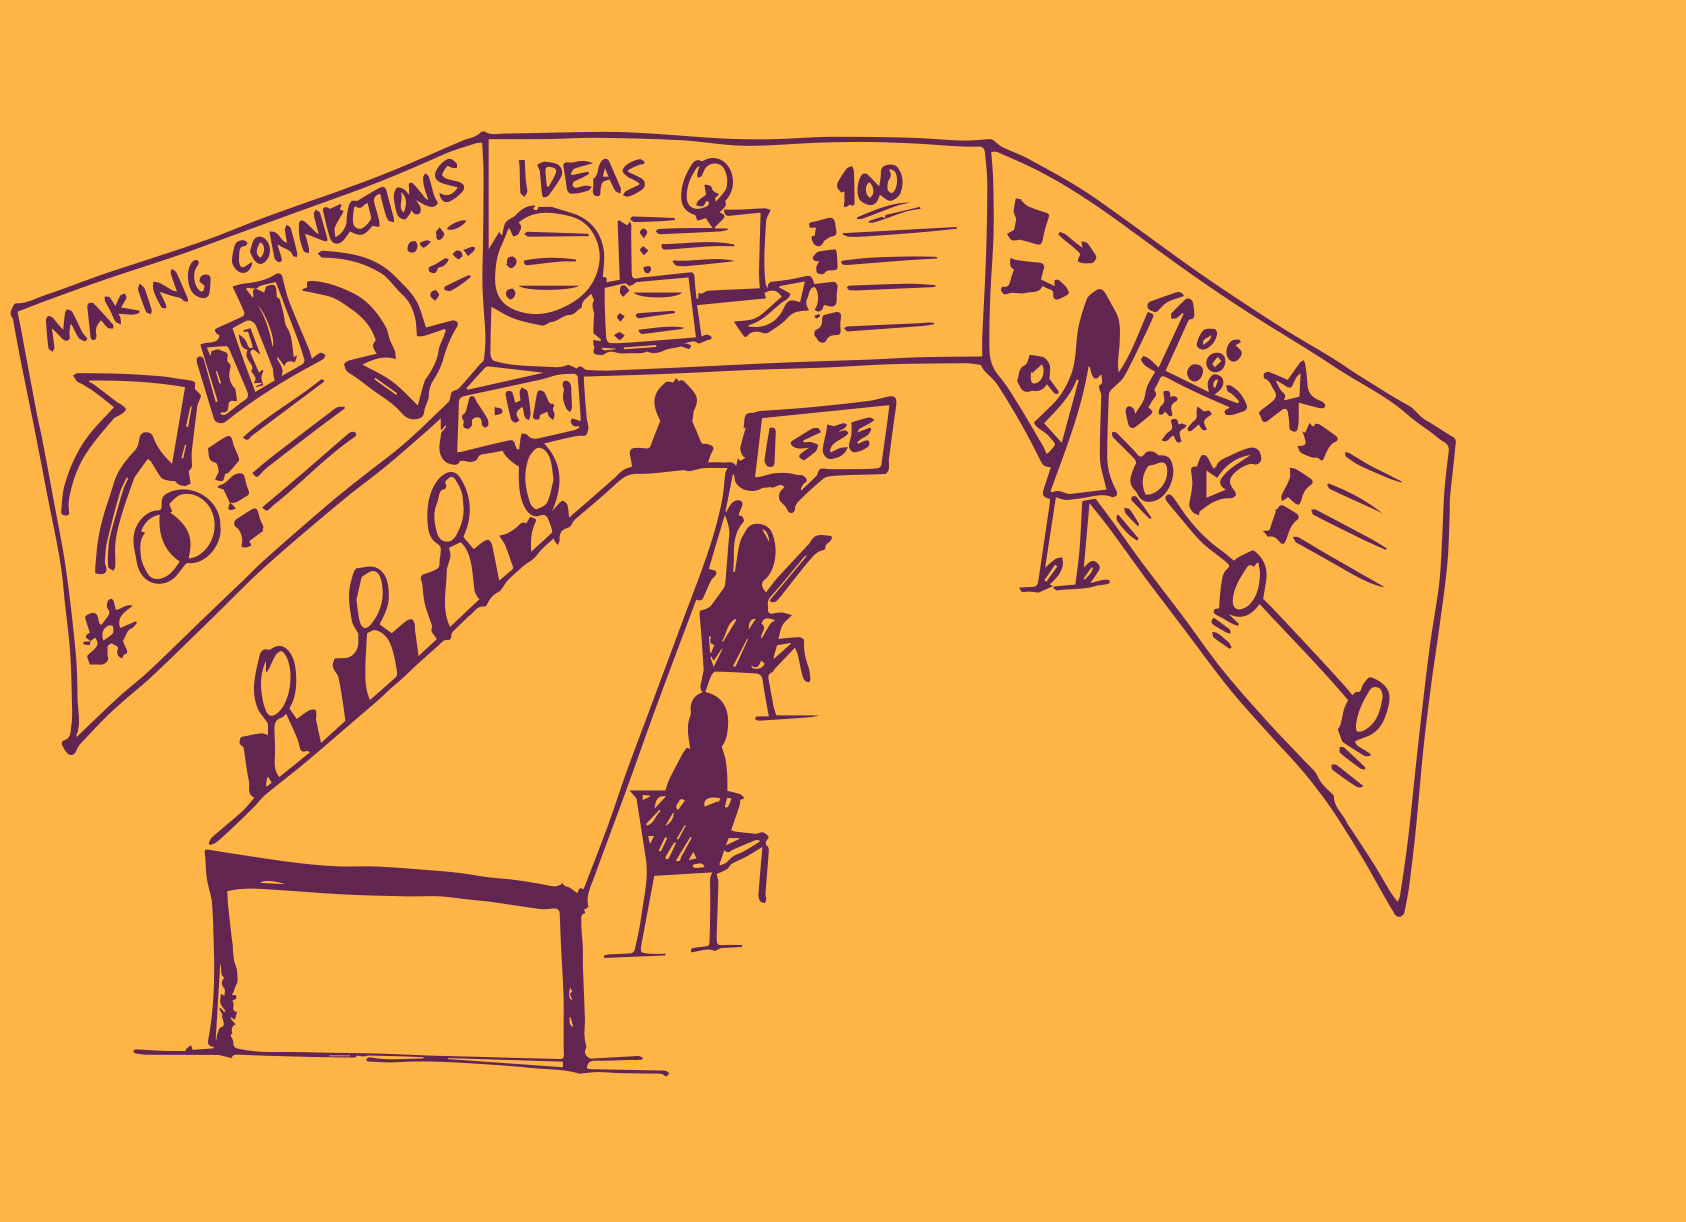 MAKING CONNECTIONS
IDEAS
100
A-HA!
I SEE
#